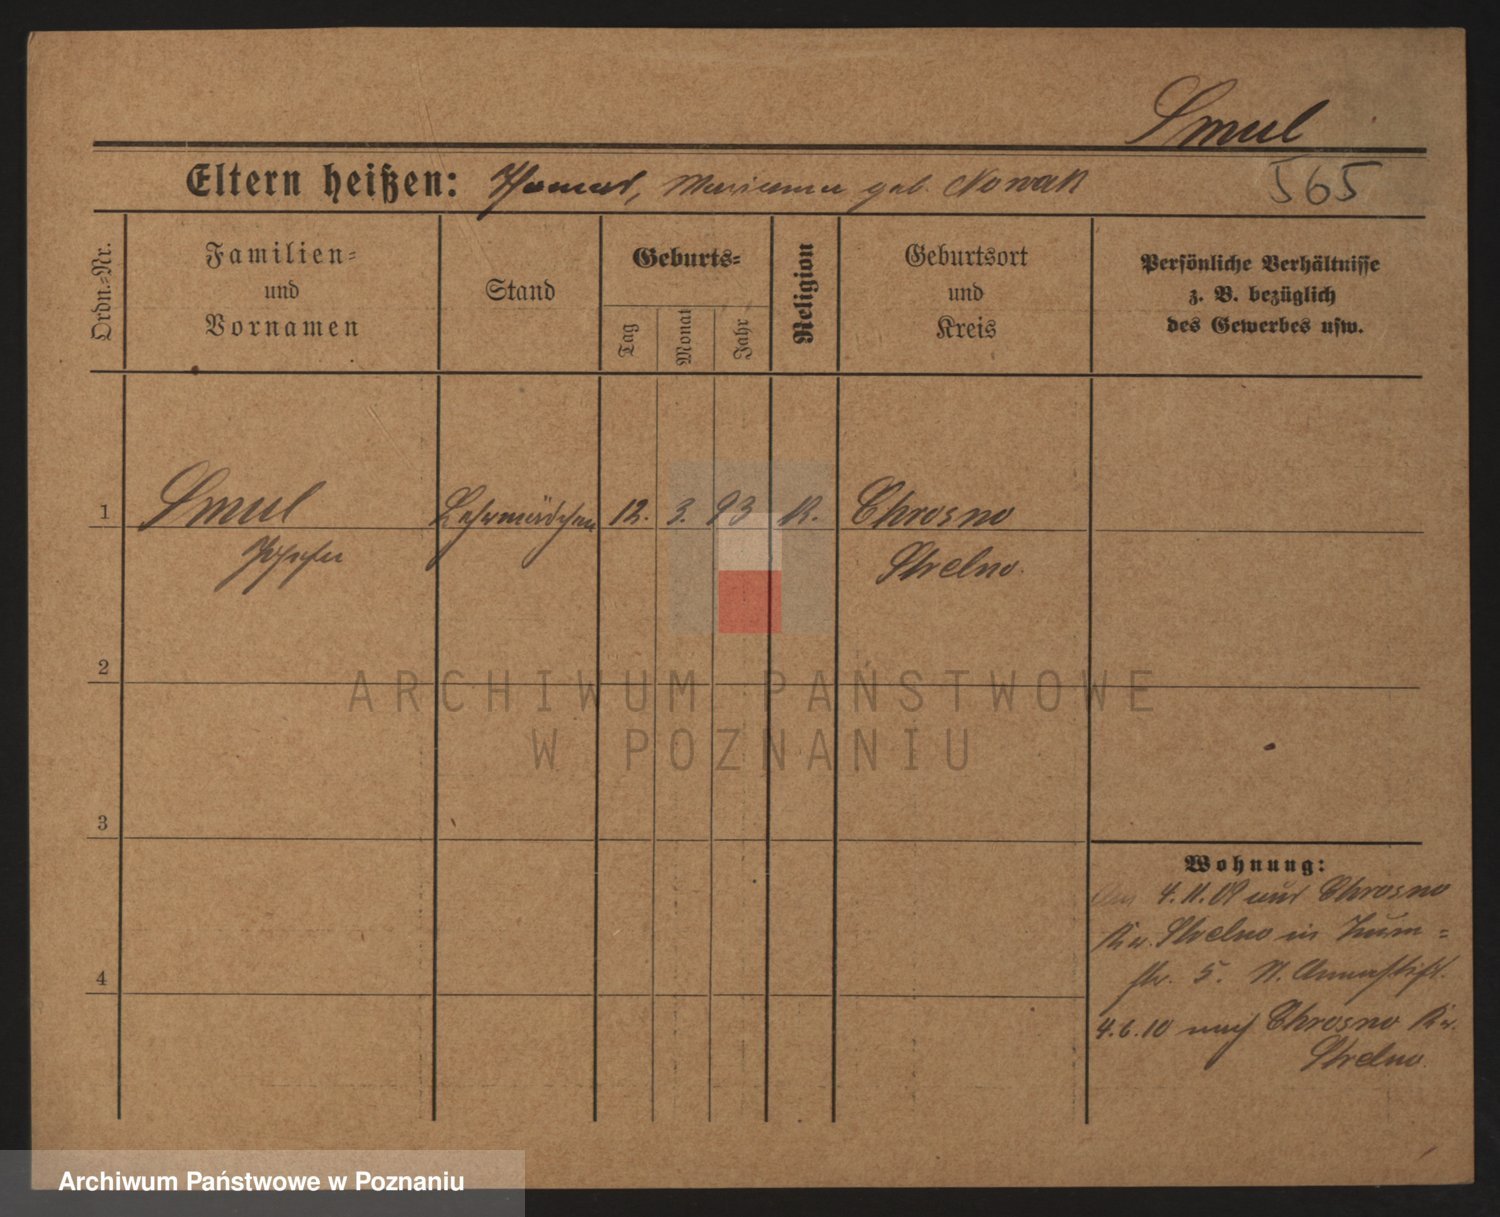 Smul
Eltern heißen: Thomas, Marianna geb. Nowak
565
Ordn.-Nr.
Familien-
und
Vornamen
Stand
Geburts-
Tag
Monat
Jahr
Religion
Geburtsort
und
Kreis
Persönliche Verhältnisse
z. B. bezüglich
des Gewerbes usw.
1 Smul Lehrmädchen 12. 3. 93 K. Chrosno
Josefa Strelno.
2
ARCHIWUM PAŃSTWOWE
W POZNANIU
3
Wohnung:
4.11.09 aus Chrosno
Kr. Strelno in
str. 5. Annastift.
4
4.6.10 nach Chrosno Kr.
Strelno.
Archiwum Państwowe w Poznaniu